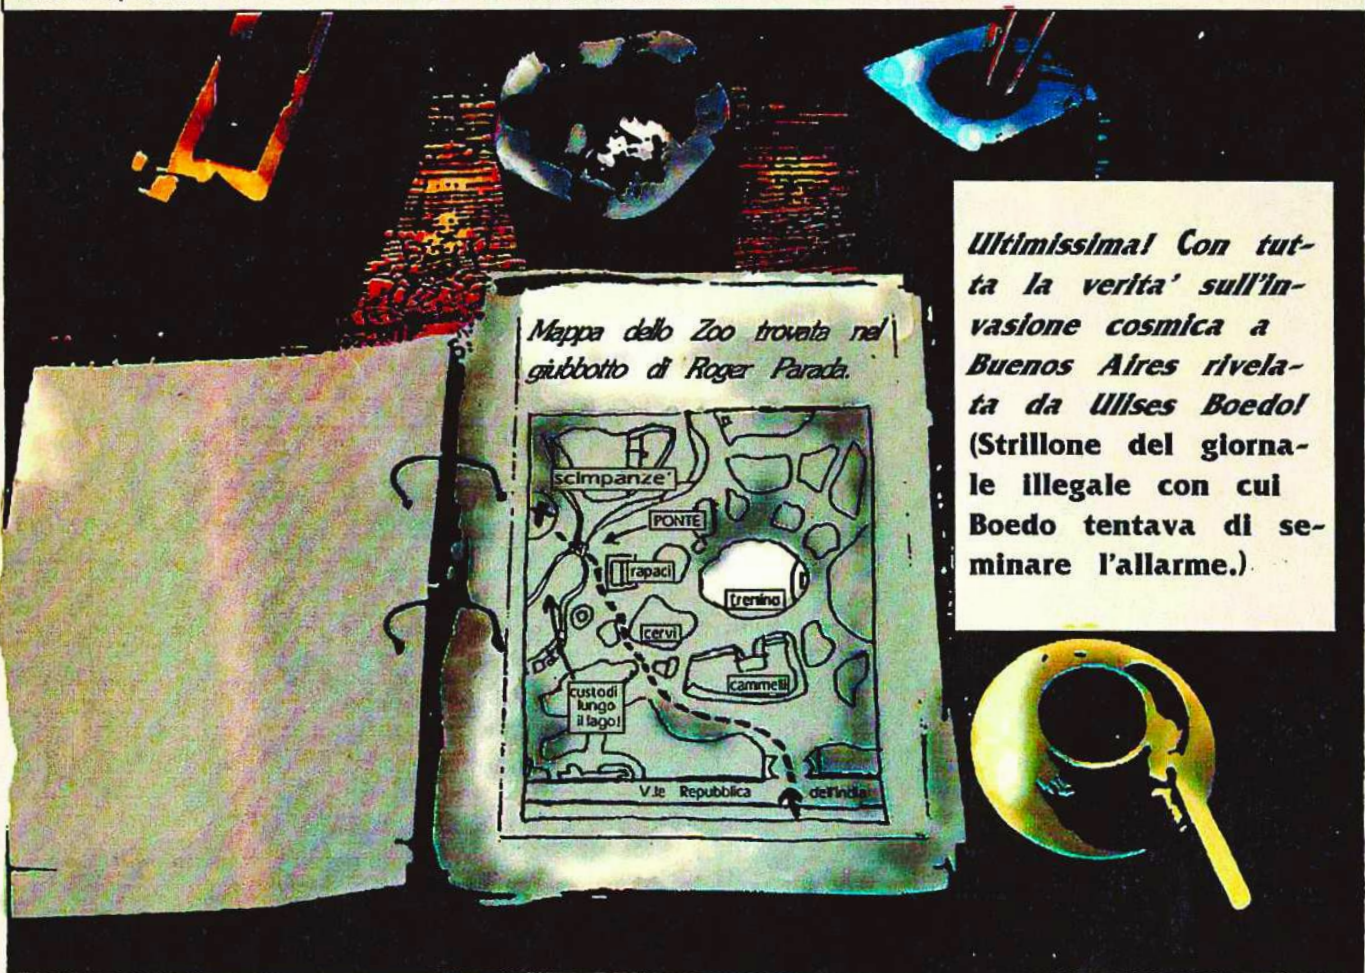 Mappa dello Zoo trovata nel
giubbotto di Roger Parada.
scimpanze'
PONTE
rapaci
trenino
cervi
cammelli
custodi
lungo
il lago!
V.le Repubblica dell'India
Ultimissima! Con tut-
ta la verita' sull'in-
vasione cosmica a
Buenos Aires rivela-
ta da Ulises Boedo!
(Strillone del giorna-
le illegale con cui
Boedo tentava di se-
minare l'allarme.)